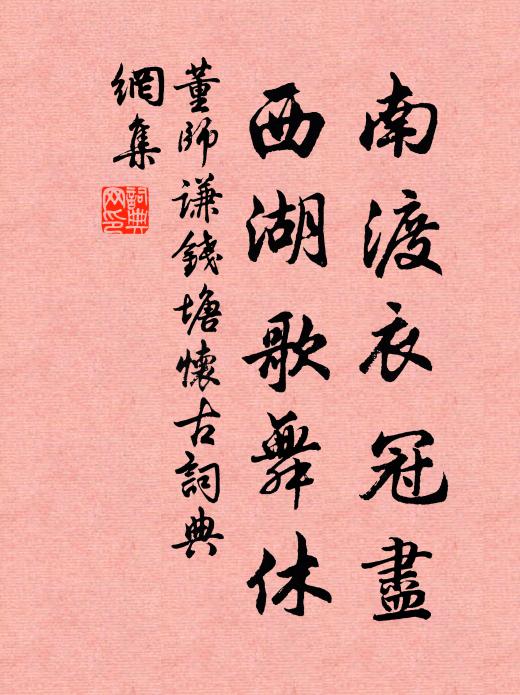 南渡衣冠盡
西湖歌舞休
董師谦錢塘懷古詞典
網集
詞典網印